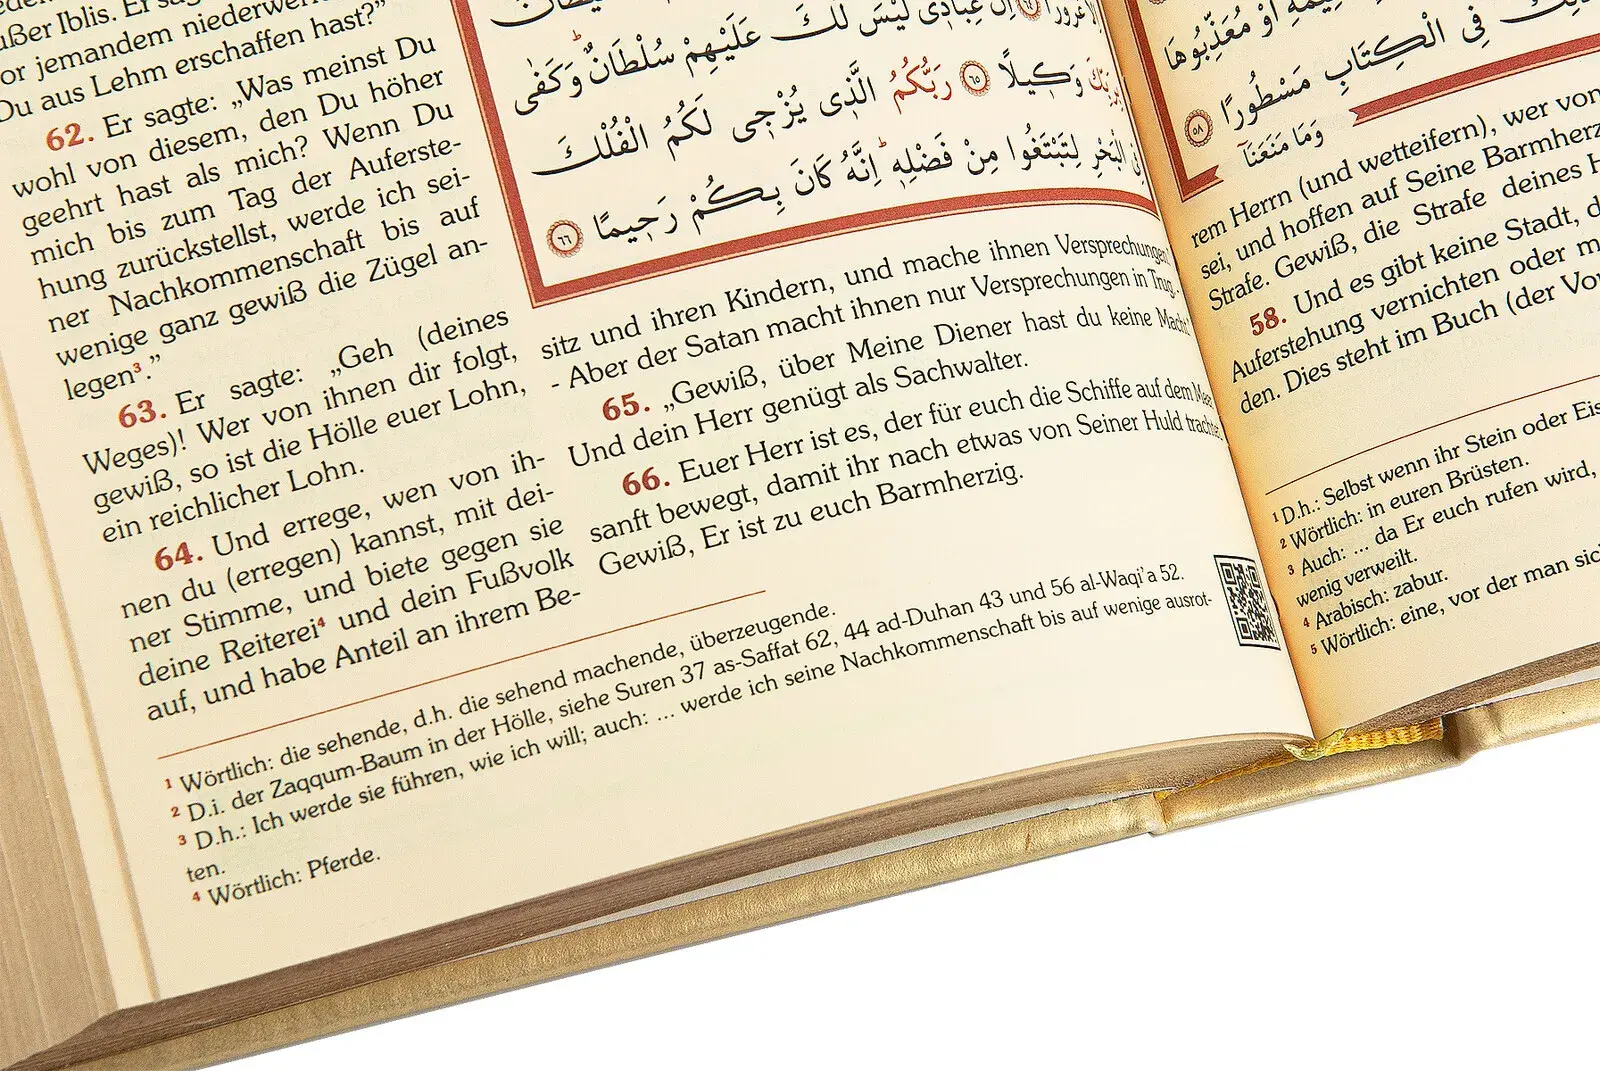 außer Iblis. Er sag
vor jemandem niederwer
Du aus Lehm erschaffen hast?”
62. Er sagte: „Was meinst Du
wohl von diesem, den Du höher
geehrt hast als mich? Wenn Du
mich bis zum Tag der Auferste-
hung zurückstellst, werde ich sei-
ner Nachkommenschaft bis auf
wenige ganz gewiß die Zügel an-
legen³.”
63. Er sagte: „Geh (deines
Weges)! Wer von ihnen dir folgt,
gewiß, so ist die Hölle euer Lohn,
ein reichlicher Lohn.
64. Und errege, wen von ih-
nen du (erregen) kannst, mit dei-
ner Stimme, und biete gegen sie
deine Reiterei⁴ und dein Fußvolk
auf, und habe Anteil an ihrem Be-
غُرُورًا ﴿٦٤﴾ اِنَّ عِبَادٖى لَيْسَ لَكَ عَلَيْهِمْ سُلْطَانٌ وَكَفٰى
بِرَبِّكَ وَكٖيلًا ﴿٦٥﴾ رَبُّكُمُ الَّذٖى يُزْجٖى لَكُمُ الْفُلْكَ
فِى الْبَحْرِ لِتَبْتَغُوا مِنْ فَضْلِهٖ اِنَّهُ كَانَ بِكُمْ رَحٖيمًا ﴿٦٦﴾
sitz und ihren Kindern, und mache ihnen Versprechungen.’
- Aber der Satan macht ihnen nur Versprechungen in Trug.
65. „Gewiß, über Meine Diener hast du keine Macht.”
Und dein Herr genügt als Sachwalter.
66. Euer Herr ist es, der für euch die Schiffe auf dem Meer
sanft bewegt, damit ihr nach etwas von Seiner Huld trachtet
Gewiß, Er ist zu euch Barmherzig.
¹ Wörtlich: die sehende, d.h. die sehend machende, überzeugende.
² D.i. der Zaqqum-Baum in der Hölle, siehe Suren 37 as-Saffat 62, 44 ad-Duhan 43 und 56 al-Waqi’a 52.
³ D.h.: Ich werde sie führen, wie ich will; auch: ... werde ich seine Nachkommenschaft bis auf wenige ausrot-
ten.
⁴ Wörtlich: Pferde.
اَوْ مُعَذِّبُوهَا
فِى الْكِتَابِ مَسْطُورًا ﴿٥٨﴾
وَمَا مَنَعَنَا
rem Herrn (und wetteifern), wer von
sei, und hoffen auf Seine Barmherz
Strafe. Gewiß, die Strafe deines H
58. Und es gibt keine Stadt, d
Auferstehung vernichten oder m
den. Dies steht im Buch (der Vo
¹ D.h.: Selbst wenn ihr Stein oder Eis
² Wörtlich: in euren Brüsten.
³ Auch: ... da Er euch rufen wird,
wenig verweilt.
⁴ Arabisch: zabur.
⁵ Wörtlich: eine, vor der man sich